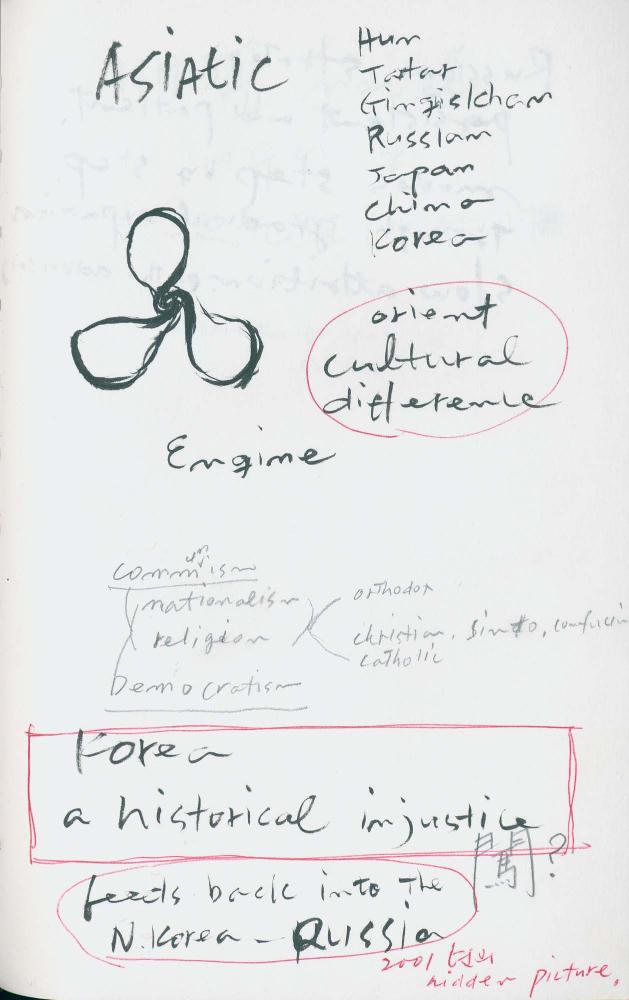 Asiatic
Hun
Tatar
Gingiskhan
Russian
Japan
China
Korea
orient
cultural
difference
Engine
commun'ism
nationalism
religion
Democratism
orthodox
christian, Sinto, confucian
catholic
Korea
a historical injustice
闖?
feeds back into The
N. Korea - Russia
2001
hidden picture.